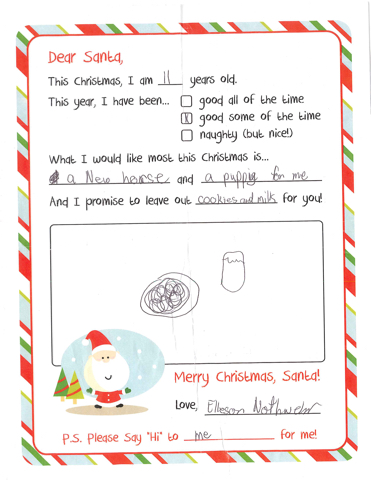 Dear Santa,
This Christmas, I am 11 years old.
This year, I have been... good all of the time
good some of the time
naughty (but nice!)
What I would like most this Christmas is...
a New and a puppy for me
And I promise to leave out cookies and milk for you!
Merry Christmas, Santa!
Love,
P.S. Please Say "Hi" to me for me!